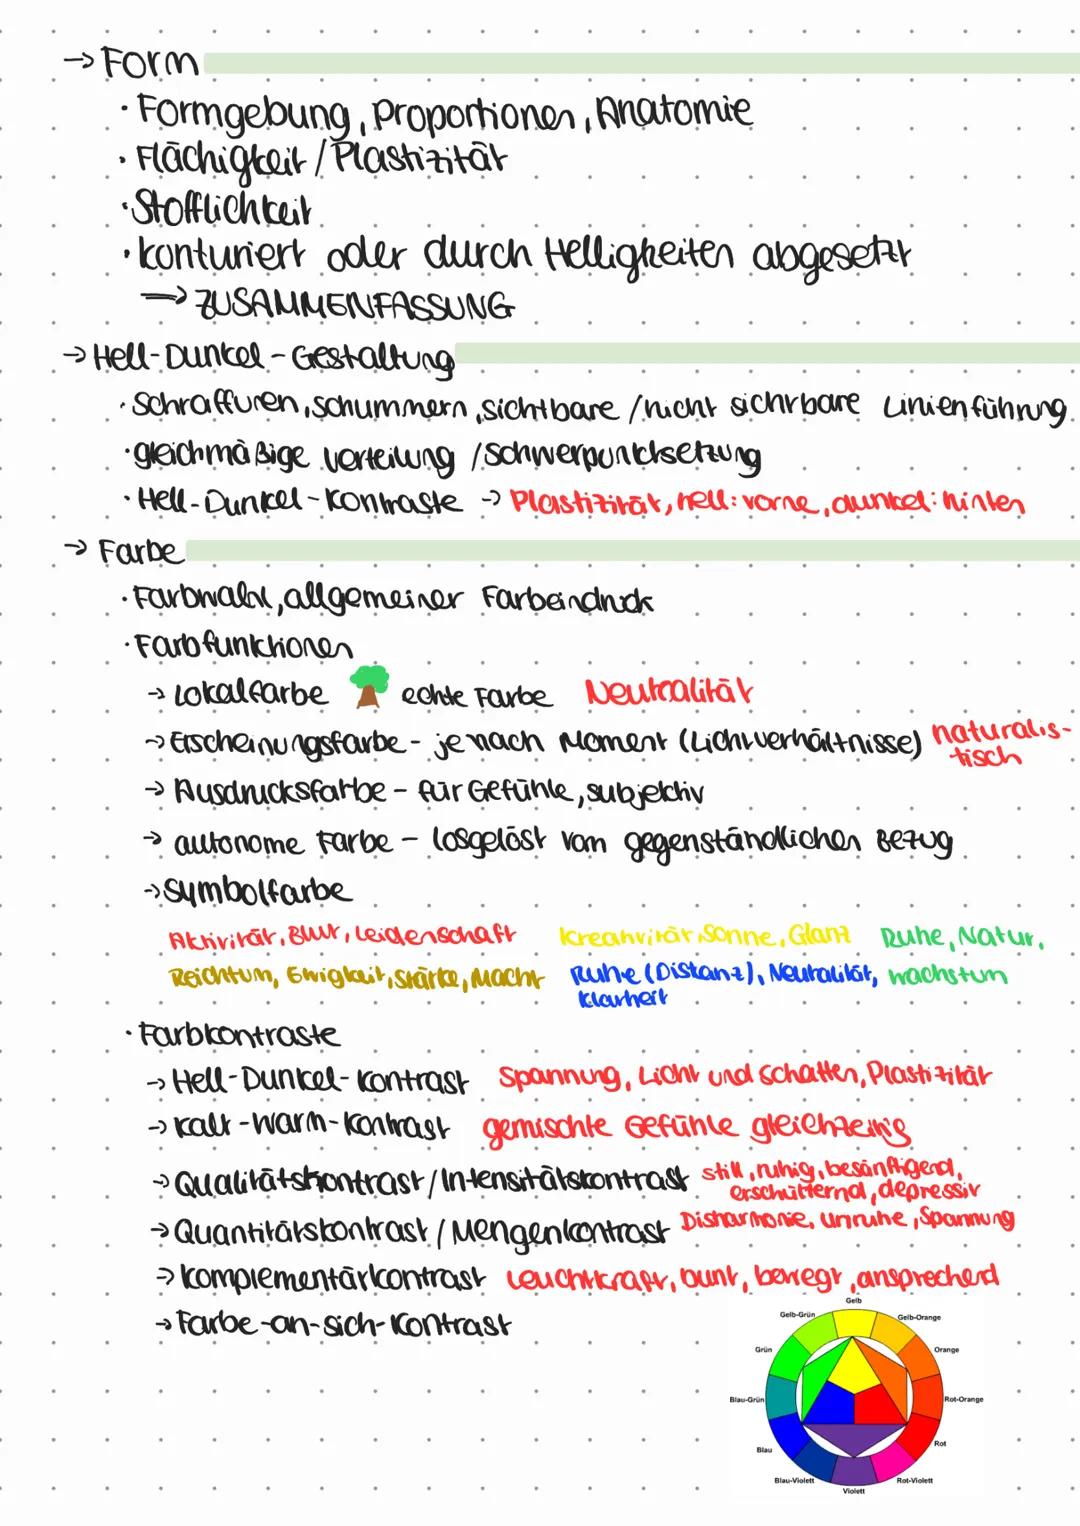 → Form
· Formgebung, Proportionen, Anatomie
· Flächigkeit / Plastizität
· Stofflichkeit
· konturiert oder durch Helligkeiten abgesetzt
⟹ ZUSAMMENFASSUNG
→ Hell-Dunkel-Gestaltung
· Schraffuren, schummern, sichtbare / nicht sichtbare Linienführung
· gleichmäßige Verteilung / Schwerpunktsetzung
· Hell-Dunkel-Kontraste → Plastizität, hell: vorne, dunkel: hinten
→ Farbe
· Farbwahl, allgemeiner Farbeindruck
· Farbfunktionen
→ Lokalfarbe echte Farbe Neutralität
→ Erscheinungsfarbe - je nach Moment (Lichtverhältnisse) naturalis-
tisch
→ Ausdrucksfarbe - für Gefühle, subjektiv
→ autonome Farbe - losgelöst vom gegenständlichen Bezug
→ Symbolfarbe
Aktivität, Blut, Leidenschaft Kreativität, Sonne, Glanz Ruhe, Natur,
Reichtum, Ewigkeit, Stärke, Macht Ruhe (Distanz), Neutralität, Wachstum
Klarheit
· Farbkontraste
→ Hell-Dunkel-Kontrast Spannung, Licht und Schatten, Plastizität
→ Kalt-Warm-Kontrast gemischte Gefühle gleichzeitig
→ Qualitätskontrast / Intensitätskontrast still, ruhig, besänftigend,
erschütternd, depressiv
→ Quantitätskontrast / Mengenkontrast Disharmonie, Unruhe, Spannung
→ Komplementärkontrast Leuchtkraft, bunt, bewegt, ansprechend
→ Farbe-an-sich-Kontrast
Gelb
Gelb-Grün Gelb-Orange
Grün Orange
Blau-Grün Rot-Orange
Blau Rot
Blau-Violett Rot-Violett
Violett